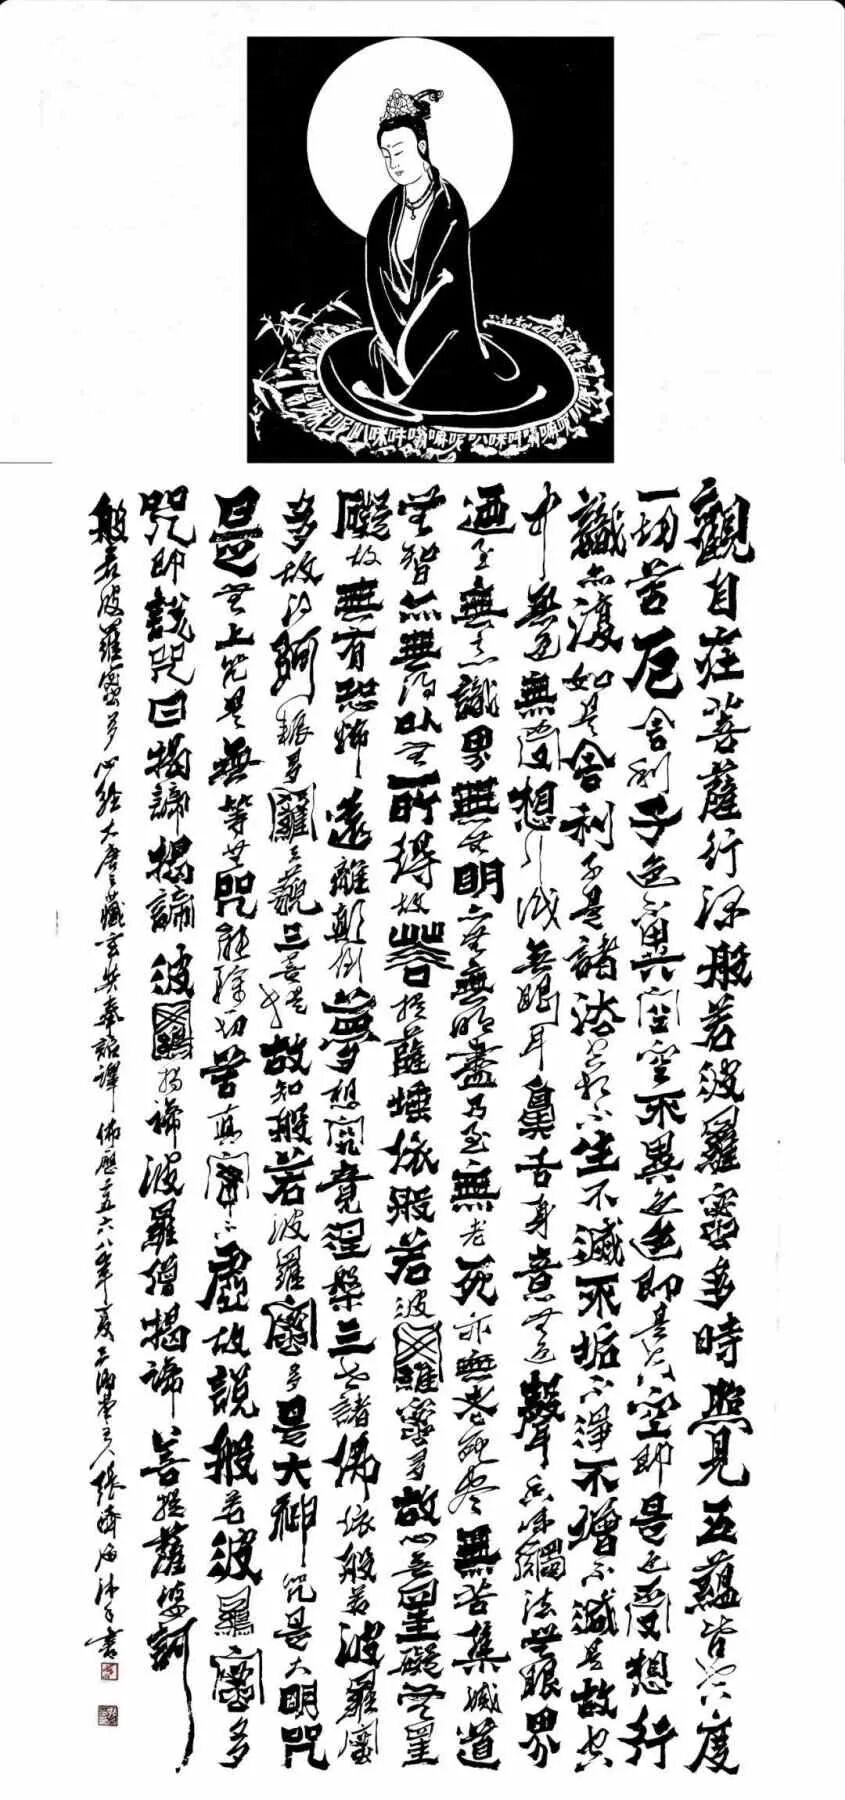 嘛呢叭咪吽嗡嘛呢叭咪吽嗡嘛呢叭
觀自在菩薩行深般若波羅蜜多時照見五蘊皆空度
一切苦厄舍利子色不異空空不異色色即是空空即是色受想行
識亦復如是舍利子是諸法空相不生不滅不垢不淨不增不減是故空
中無色無受想行識無眼耳鼻舌身意無色聲香味觸法無眼界
迺至無意識界無無明亦無無明盡乃至無老死亦無老死盡無苦集滅道
無智亦無得以無所得故菩提薩埵依般若波羅蜜多故心無罣礙無罣
礙故無有恐怖遠離顛倒夢想究竟涅槃三世諸佛依般若波羅蜜
多故得阿耨多羅三藐三菩提故知般若波羅蜜多是大神咒是大明咒
是無上咒是無等等咒能除一切苦真實不虛故說般若波羅蜜多
咒即說咒曰揭諦揭諦波羅揭諦波羅僧揭諦菩提薩婆訶
般若波羅蜜多心經大唐三藏玄奘奉詔譯佛歷二五六八年夏張濟海沐手書